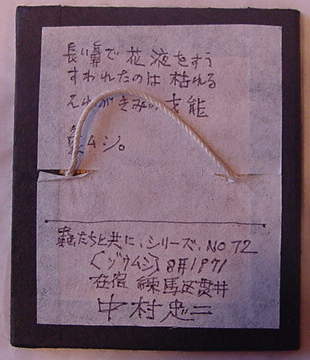 長い鼻で 花液をすう
すわれたのは 枯れる
それがきみの才能
象ムシ。
蟲たちと共に、シリーズ、NO 72
〈ゾウムシ〉8月1971
在宿 練馬区貫井
中村忠二